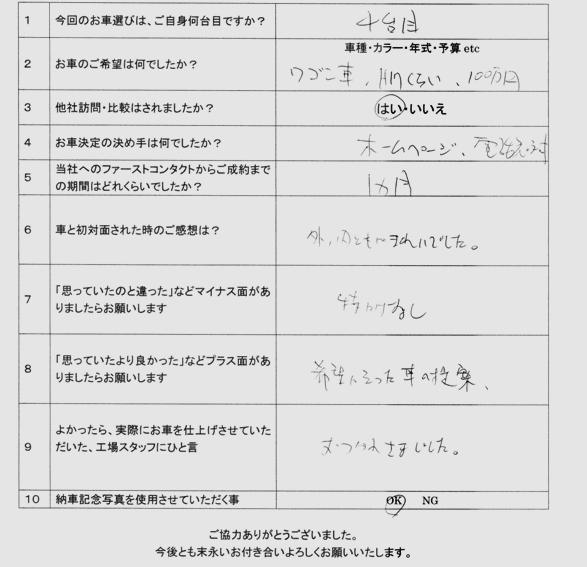 1 今回のお車選びは、ご自身何台目ですか？ 4台目
車種・カラー・年式・予算 etc
2 お車のご希望は何でしたか？ ワゴン車、H17くらい、100万円
3 他社訪問・比較はされましたか？ はい・いいえ
4 お車決定の決め手は何でしたか？ ホームページ、電話応対
5 当社へのファーストコンタクトからご成約まで
の期間はどれくらいでしたか？ 1カ月
6 車と初対面された時のご感想は？ 外、内ともにきれいでした。
7 「思っていたのと違った」などマイナス面があ
りましたらお願いします 特になし
8 「思っていたより良かった」などプラス面があ
りましたらお願いします 希望にそった車の提案、
9 よかったら、実際にお車を仕上げさせていた
だいた、工場スタッフにひと言 おつかれさまでした。
10 納車記念写真を使用させていただく事 OK NG
ご協力ありがとうございました。
今後とも末永いお付き合いよろしくお願いいたします。